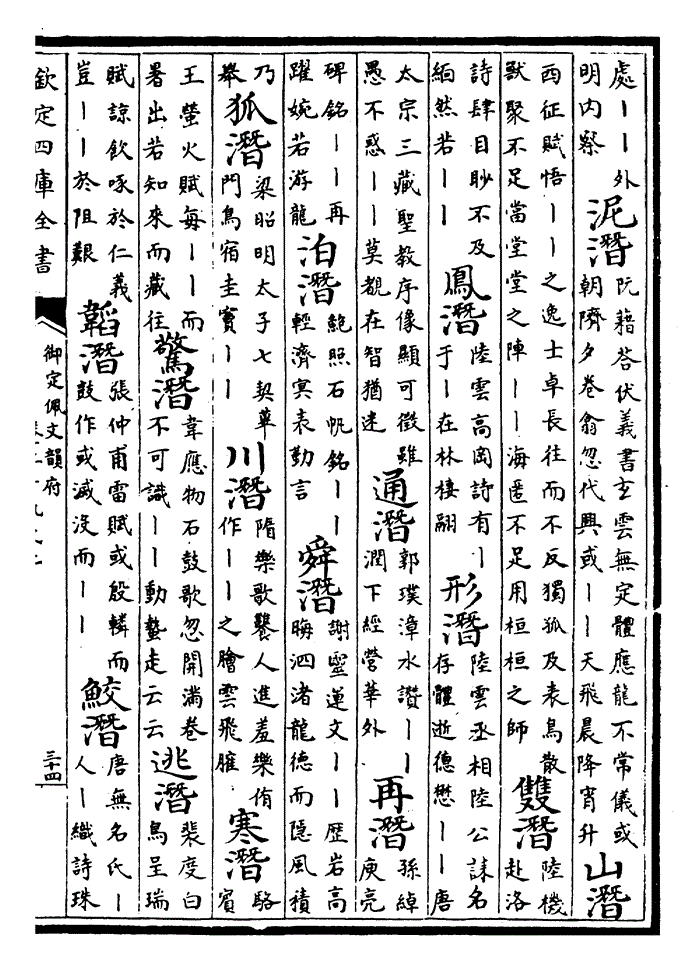 處丨丨外
明内察
泥潛
阮籍答伏義書玄雲無定體應龍不常儀或
朝隮夕卷翕忽代興或丨丨天飛晨降宵升
山潛
西征賦悟丨丨之逸士卓長往而不反獨孤及表鳥散
獸聚不足當堂堂之陣丨丨海匿不足用桓桓之師
雙潛
陸機
赴洛
詩肆目眇不及
緬然若丨丨
鳳潛
陸雲高岡詩有丨
于丨在林棲翮
形潛
陸雲丞相陸公誄名
存體逝德懋丨丨唐
太宗三藏聖教序像顯可徵雖
愚不惑丨丨莫覩在智猶迷
通潛
郭璞漳水讚丨丨
潤下經營華外
再潛
孫綽
庾亮
碑銘丨丨再
躍婉若游龍
泊潛
鮑照石帆銘丨丨
輕濟冥表勤言
舜潛
謝靈運文丨丨歷岩高
晦泗渚龍德而隱風積
乃
舉
狐潛
梁昭明太子七契華
門鳥宿圭竇丨丨
川潛
隋樂歌饔人進羞樂侑
作丨丨之膾雲飛臛
寒潛
駱
賓
王螢火賦每丨丨而
暑出若知來而藏往
驚潛
韋應物石鼓歌忽開滿卷
不可識丨丨動蟄走云云
逃潛
裴度白
鳥呈瑞
賦諒飲啄於仁義
豈丨丨於阻艱
韜潛
張仲甫雷賦或殷轔而
鼓作或滅没而丨丨
鮫潛
唐無名氏丨
人丨織詩珠
欽定四庫全書
御定佩文韻府
三十四